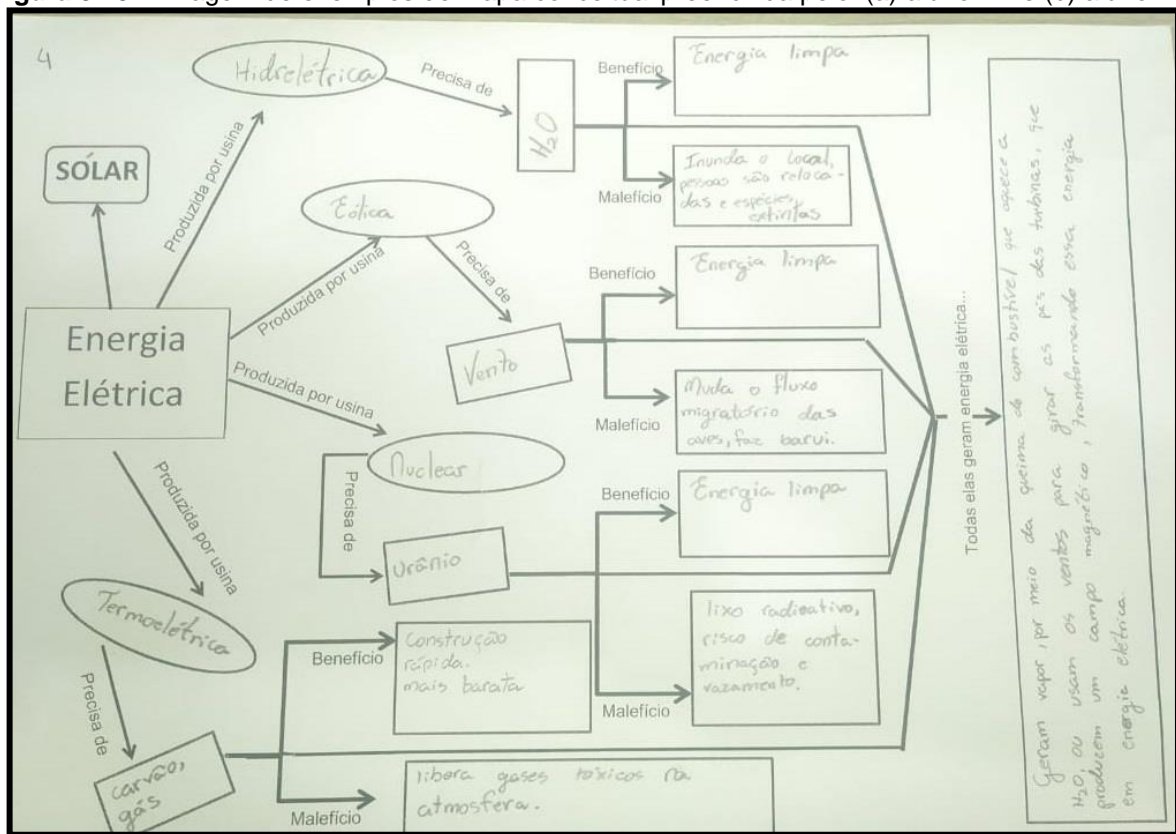 4
Hidrelétrica
Precisa de
H₂O
Benefício
Energia limpa
Malefício
Inunda o local,
pessoas são reloca-
das e espécies
extintas
SOLAR
Produzida por usina
Eólica
Produzida por usina
Precisa de
Vento
Benefício
Energia limpa
Malefício
Muda o fluxo
migratório das
aves, faz barui.
Energia
Elétrica
Produzida por usina
Nuclear
Precisa de
Urânio
Benefício
Energia limpa
Malefício
lixo radioativo,
risco de conta-
minação e
vazamento.
Produzida por usina
Termoelétrica
Precisa de
carvão,
gás
Benefício
Construção
rápida.
mais barata
Malefício
libera gases tóxicos na
atmosfera.
Todas elas geram energia elétrica...
Geram vapor, por meio da queima do combustível que aquece a
H₂O, ou usam os ventos para girar as pás das turbinas, que
producem um campo magnético, transformando essa energia
em energia elétrica.